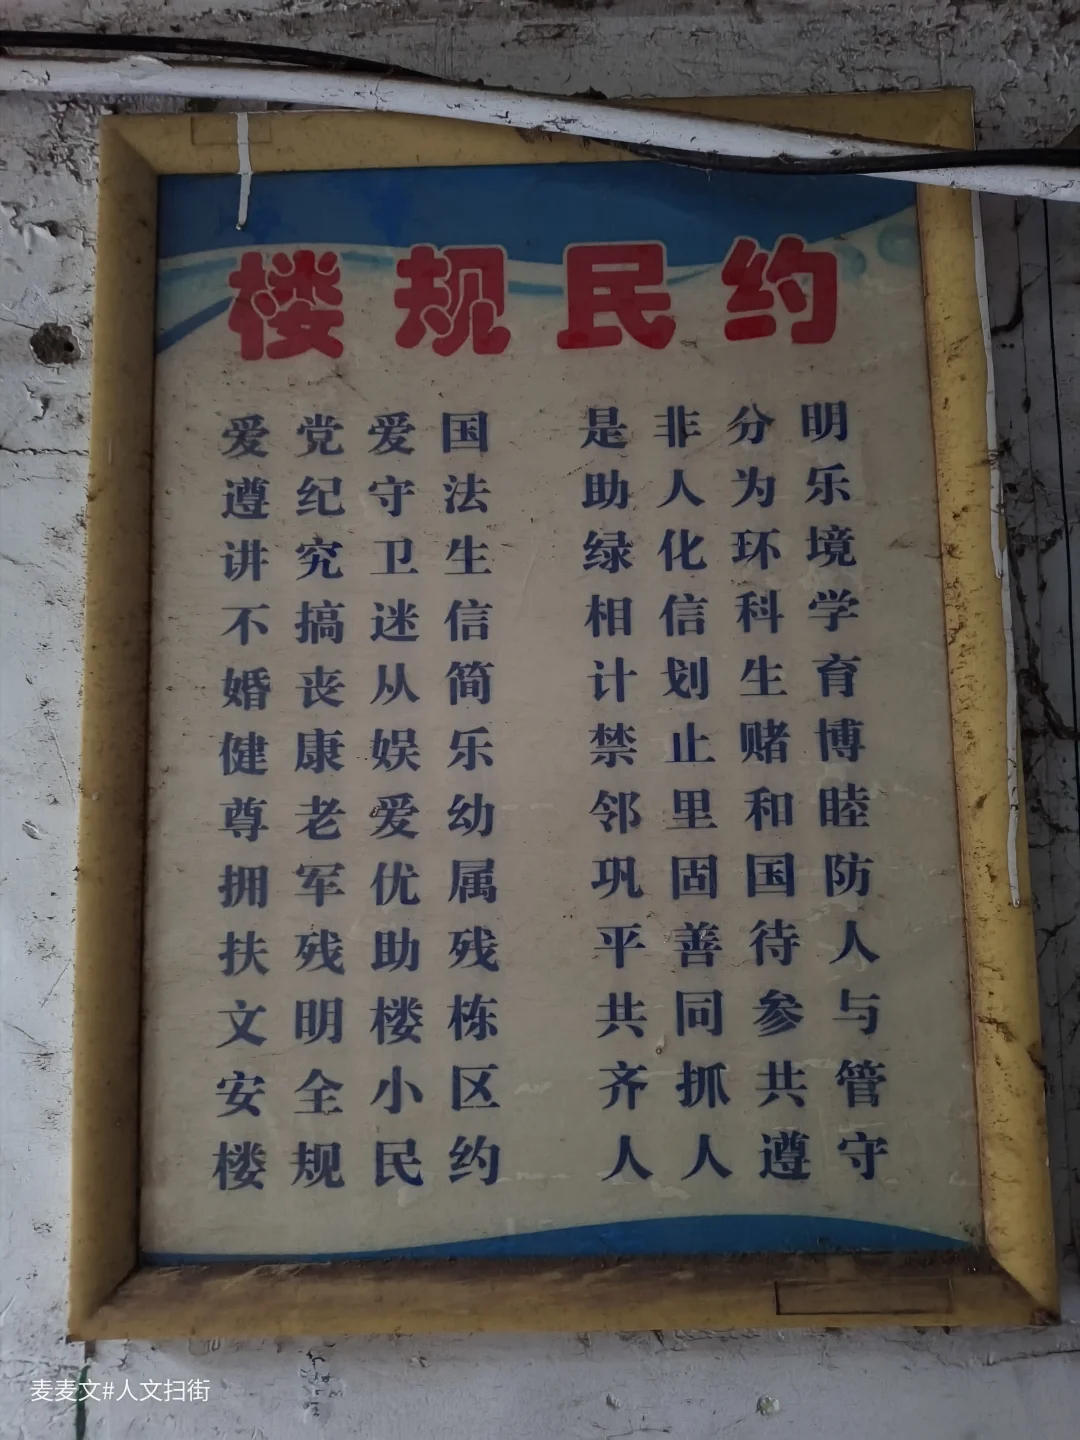 楼规民约
爱党爱国 是非分明
遵纪守法 助人为乐
讲究卫生 绿化环境
不搞迷信 相信科学
婚丧从简 计划生育
健康娱乐 禁止赌博
尊老爱幼 邻里和睦
拥军优属 巩固国防
扶残助残 平善待人
文明楼栋 共同参与
安全小区 齐抓共管
楼规民约 人人遵守
麦麦文#人文扫街